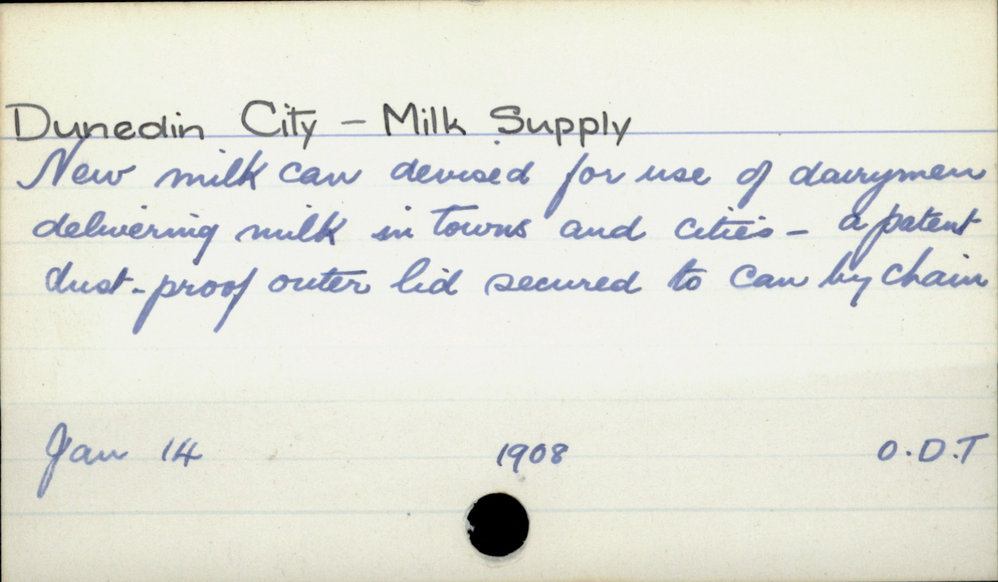 Dunedin City – Milk Supply
New milk can devised for use of dairymen
delivering milk in towns and cities – a patent
dust-proof outer lid secured to can by chain
Jan 14 1908 O.D.T